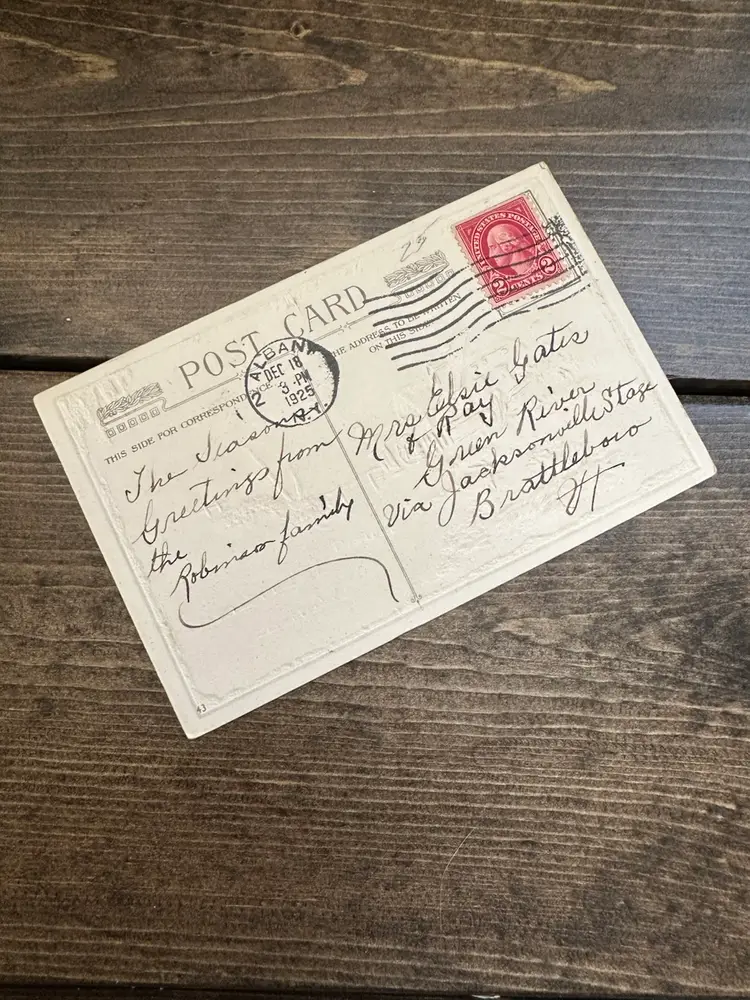 23
UNITED STATES POSTAGE
2 CENTS 2
POST CARD
THIS SIDE FOR CORRESPONDENCE
THE ADDRESS TO BE WRITTEN
ON THIS SIDE
ALBANY
2
DEC 18
3 - PM
1925
N.Y.
The Seasons
Greetings from
the
Robinson family
Mrs Elsie Gates
& Ray
Green River
Via Jacksonville Stage
Brattleboro
Vt
43